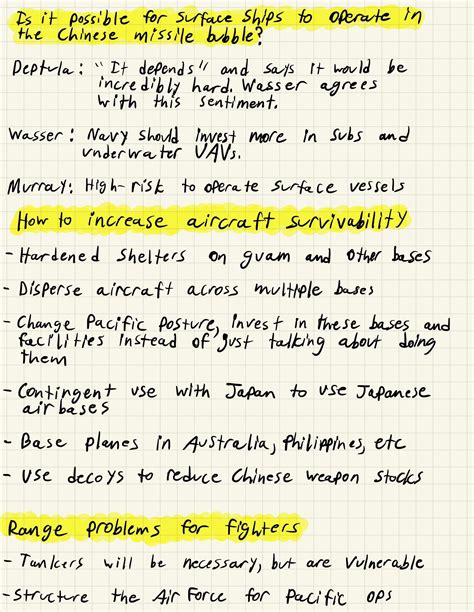 Is it possible for surface ships to operate in
the Chinese missile bubble?
Deptula: "It depends" and says it would be
incredibly hard. Wasser agrees
with this sentiment.
Wasser: Navy should invest more in subs and
underwater UAVs.
Murray: High-risk to operate surface vessels
How to increase aircraft survivability
- Hardened shelters on guam and other bases
- Disperse aircraft across multiple bases
- Change Pacific posture, invest in these bases and
facilities instead of just talking about doing
them
- Contingent use with Japan to use Japanese
airbases
- Base planes in Australia, Philippines, etc
- Use decoys to reduce Chinese weapon stocks
Range problems for fighters
- Tankers will be necessary, but are vulnerable
- Structure the Air Force for Pacific ops